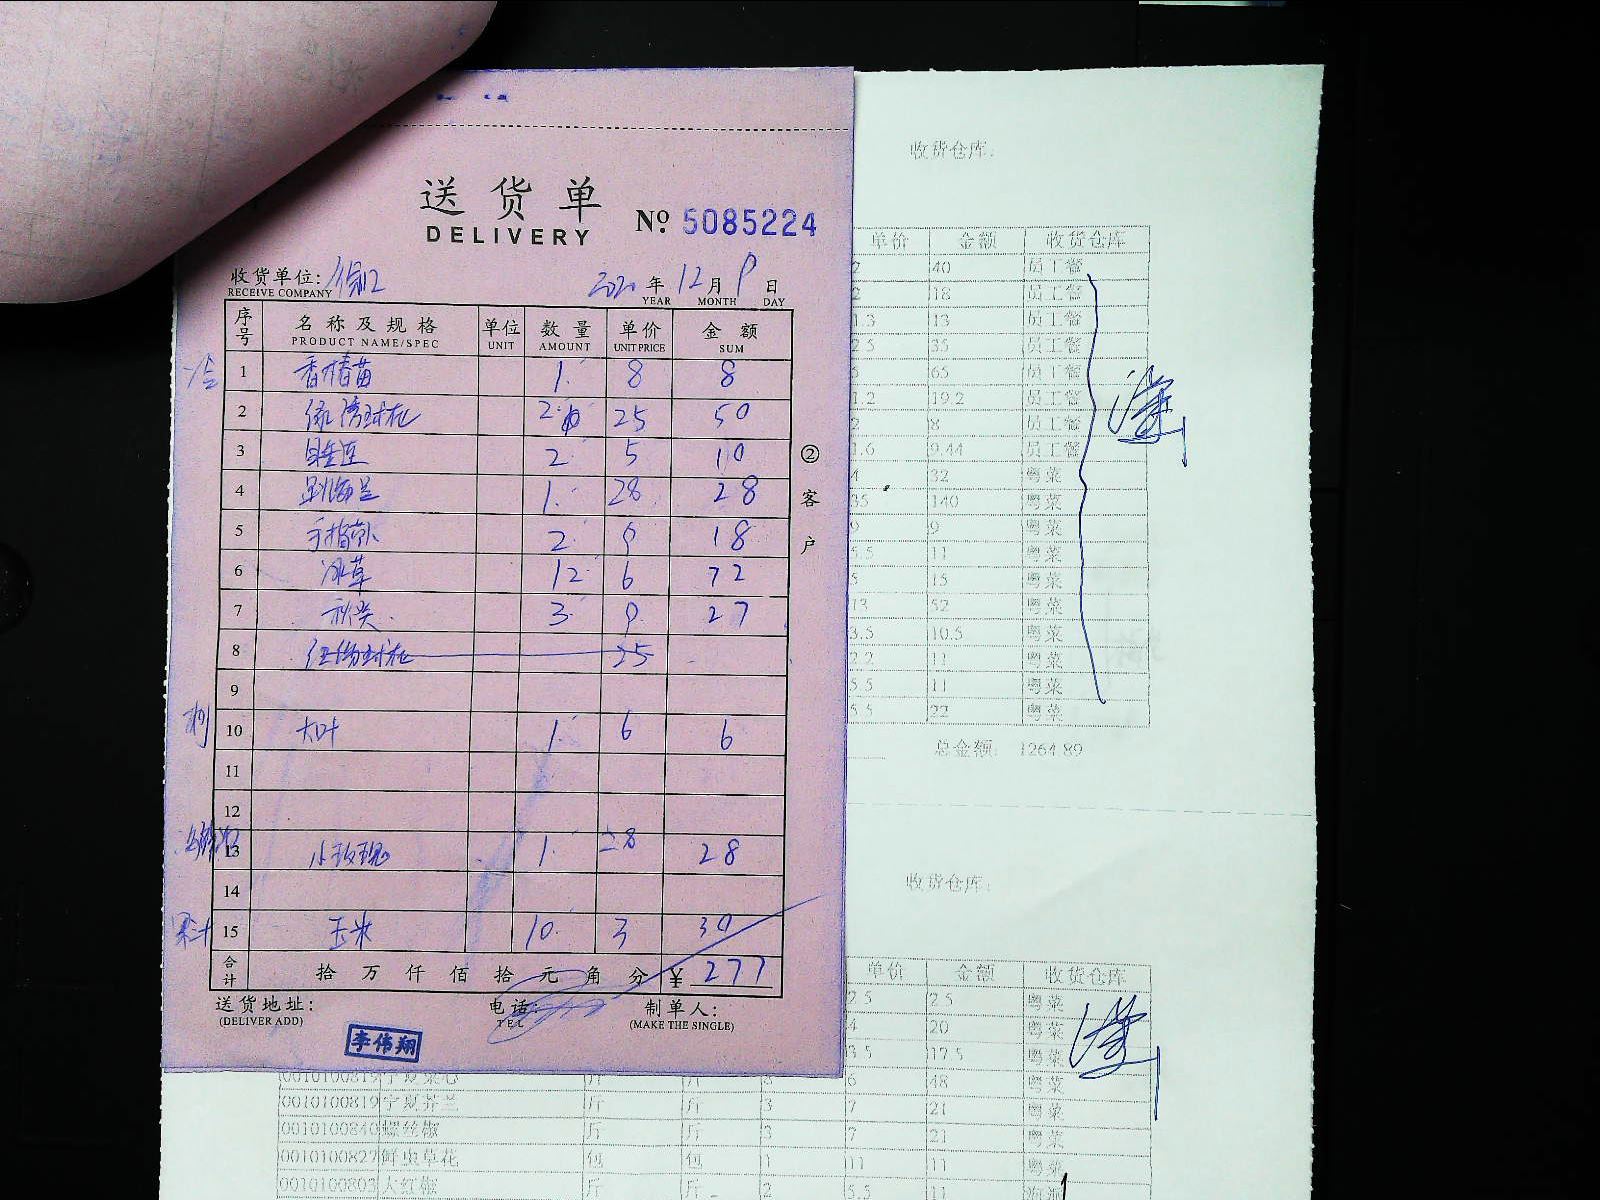 送货单
DELIVERY
№ 5085224
收货单位:
RECEIVE COMPANY
2020 年 12 月 9 日
YEAR MONTH DAY
序号 名称及规格 单位 数量 单价 金额
PRODUCT NAME/SPEC UNIT AMOUNT UNIT PRICE SUM
1 香椿苗 1. 8 8
2 25 50
3 2 5 10
4 1. 28 28
5 手指 2 9 18
6 冰草 12 6 72
7 秋 3 9 27
8 25
9
10 大叶 1. 6 6
11
12
13 小玫瑰 1. 28 28
14
果汁 15 玉米 10. 3 30
合计 拾万仟佰拾元角分 ¥ 277
送货地址:
(DELIVER ADD)
电话:
TEL
制单人:
(MAKE THE SINGLE)
李伟翔
② 客户
收货仓库:
单价 金额 收货仓库
2 40 员工餐
2 18 员工餐
1.3 13 员工餐
2.5 35 员工餐
5 65 员工餐
1.2 19.2 员工餐
2 8 员工餐
1.6 9.44 员工餐
4 32 粤菜
35 140 粤菜
9 9 粤菜
5.5 11 粤菜
5 15 粤菜
13 52 粤菜
3.5 10.5 粤菜
2.2 11 粤菜
5.5 11 粤菜
5.5 22 粤菜
总金额: 1264.89
收货仓库:
单价 金额 收货仓库
2.5 2.5 粤菜
4 20 粤菜
3.5 17.5 粤菜
0010100819 宁夏菜心 斤 斤 6 48 粤菜
0010100819 宁夏芥兰 斤 斤 3 7 21 粤菜
0010100840 螺丝椒 斤 斤 3 7 21 粤菜
0010100827 鲜虫草花 包 包 1 11 11 粤菜
0010100803 大红椒 斤 斤 2 5.5 11